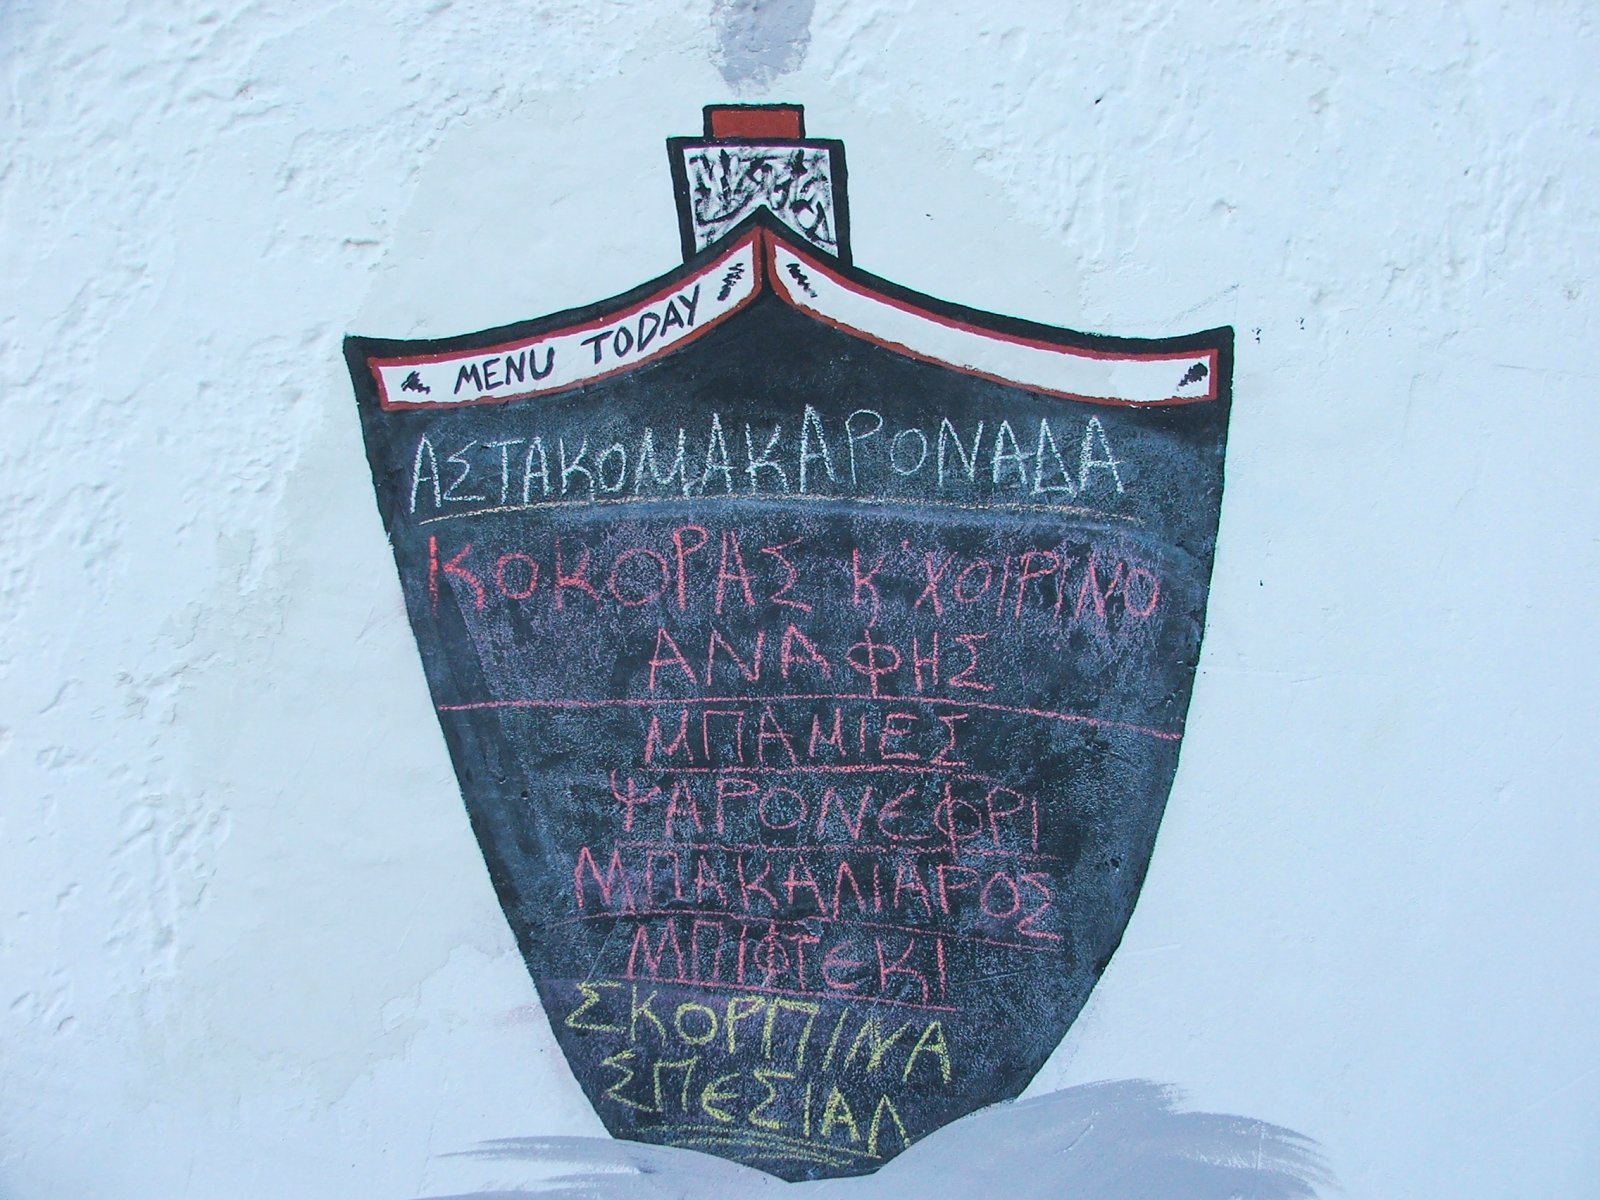 MENU TODAY
ΑΣΤΑΚΟΜΑΚΑΡΟΝΑΔΑ
ΚΟΚΟΡΑΣ Κ' ΧΟΙΡΙΝΟ
ΑΝΑΦΗΣ
ΜΠΑΜΙΕΣ
ΨΑΡΟΝΕΦΡΙ
ΜΠΑΚΑΛΙΑΡΟΣ
ΜΠΙΦΤΕΚΙ
ΣΚΟΡΠΙΝΑ
ΣΠΕΣΙΑΛ